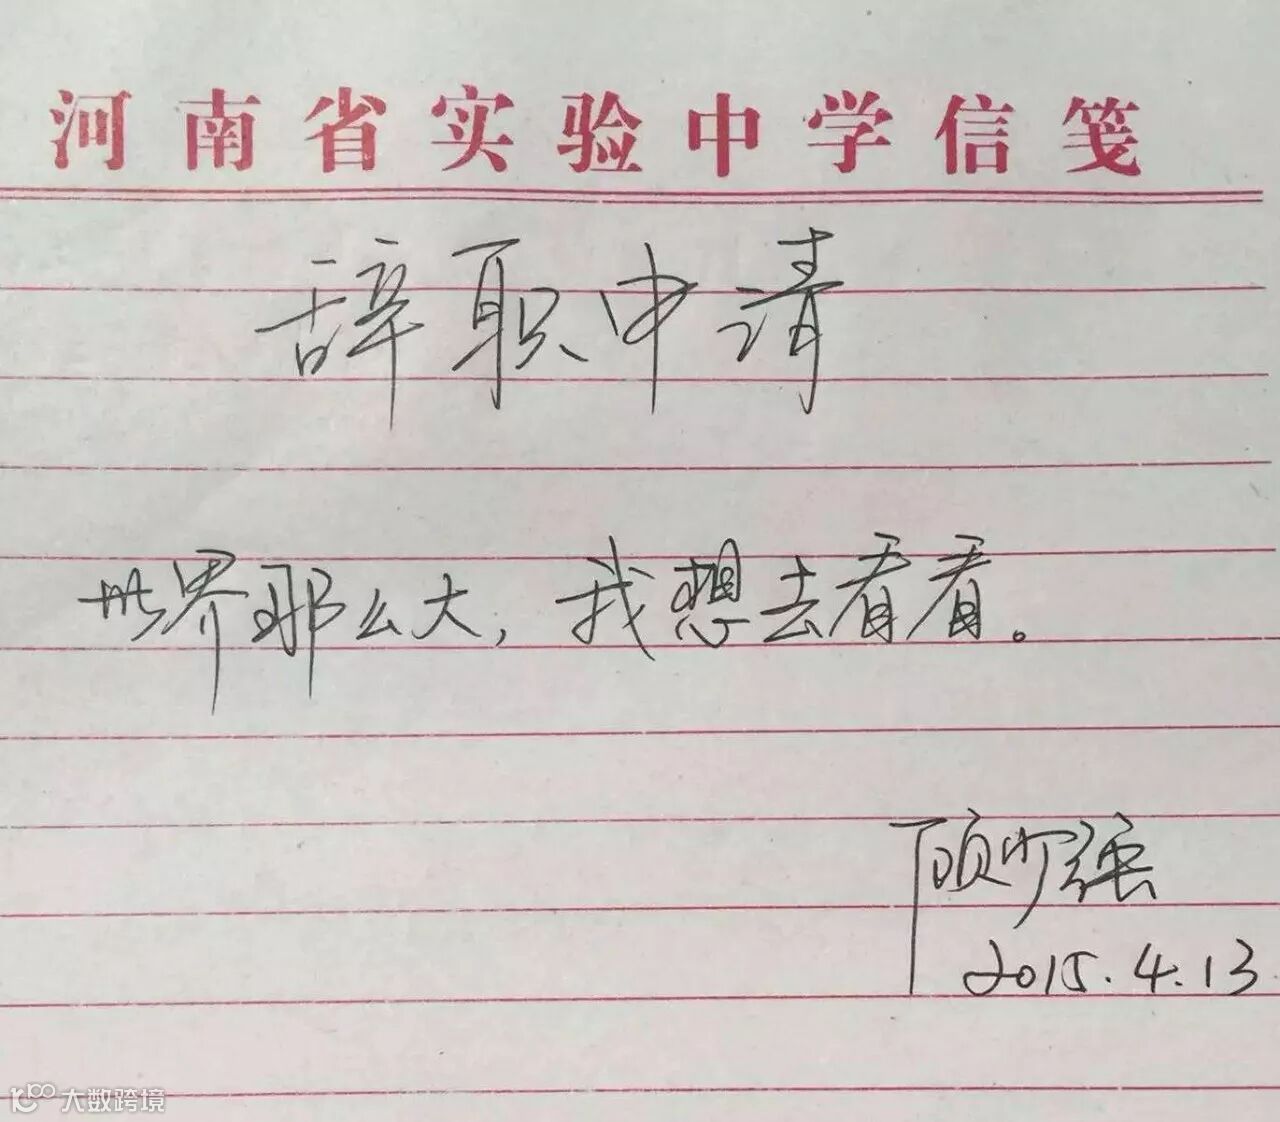 河南省实验中学信笺
辞职申请
世界那么大，我想去看看。
顾少强
2015.4.13
大数跨境